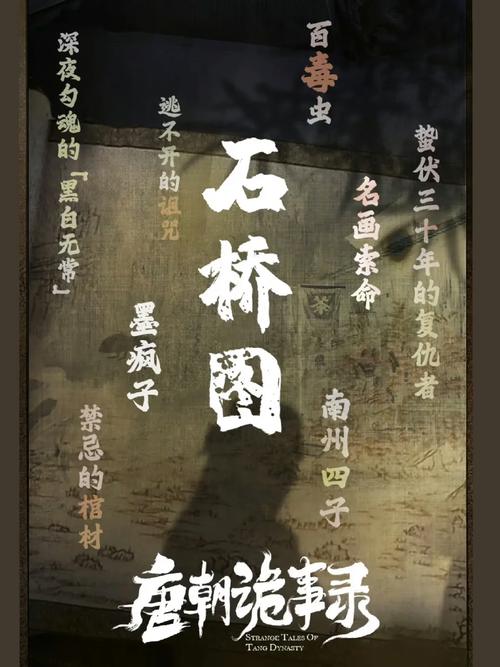 百毒虫
蛰伏三十年的复仇者
名画索命
南州四子
石桥图
逃不开的诅咒
墨疯子
深夜勾魂的「黑白无常」
禁忌的棺材
茶
唐朝诡事录
STRANGE TALES OF
TANG DYNASTY